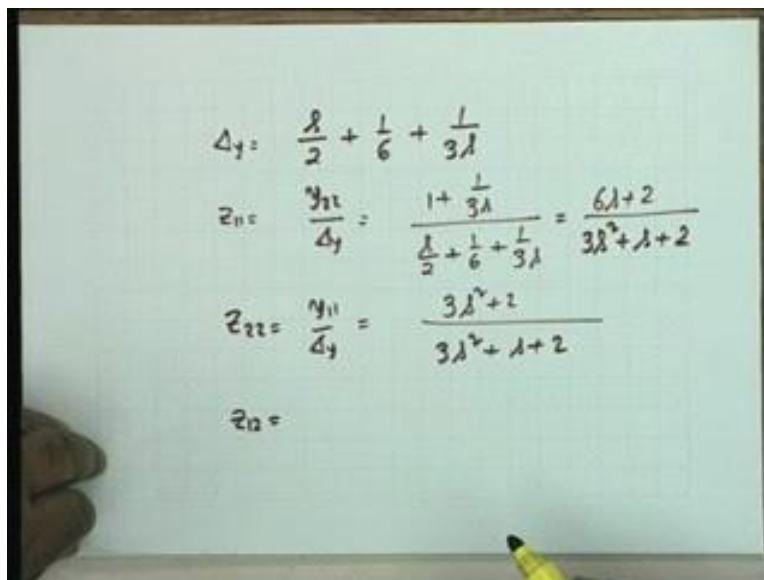 Δy = s/2 + 1/6 + 1/3s
z11 = y22/Δy = (1 + 1/3s)/(s/2 + 1/6 + 1/3s) = (6s+2)/(3s²+s+2)
z22 = y11/Δy = (3s²+2)/(3s²+s+2)
z12 =